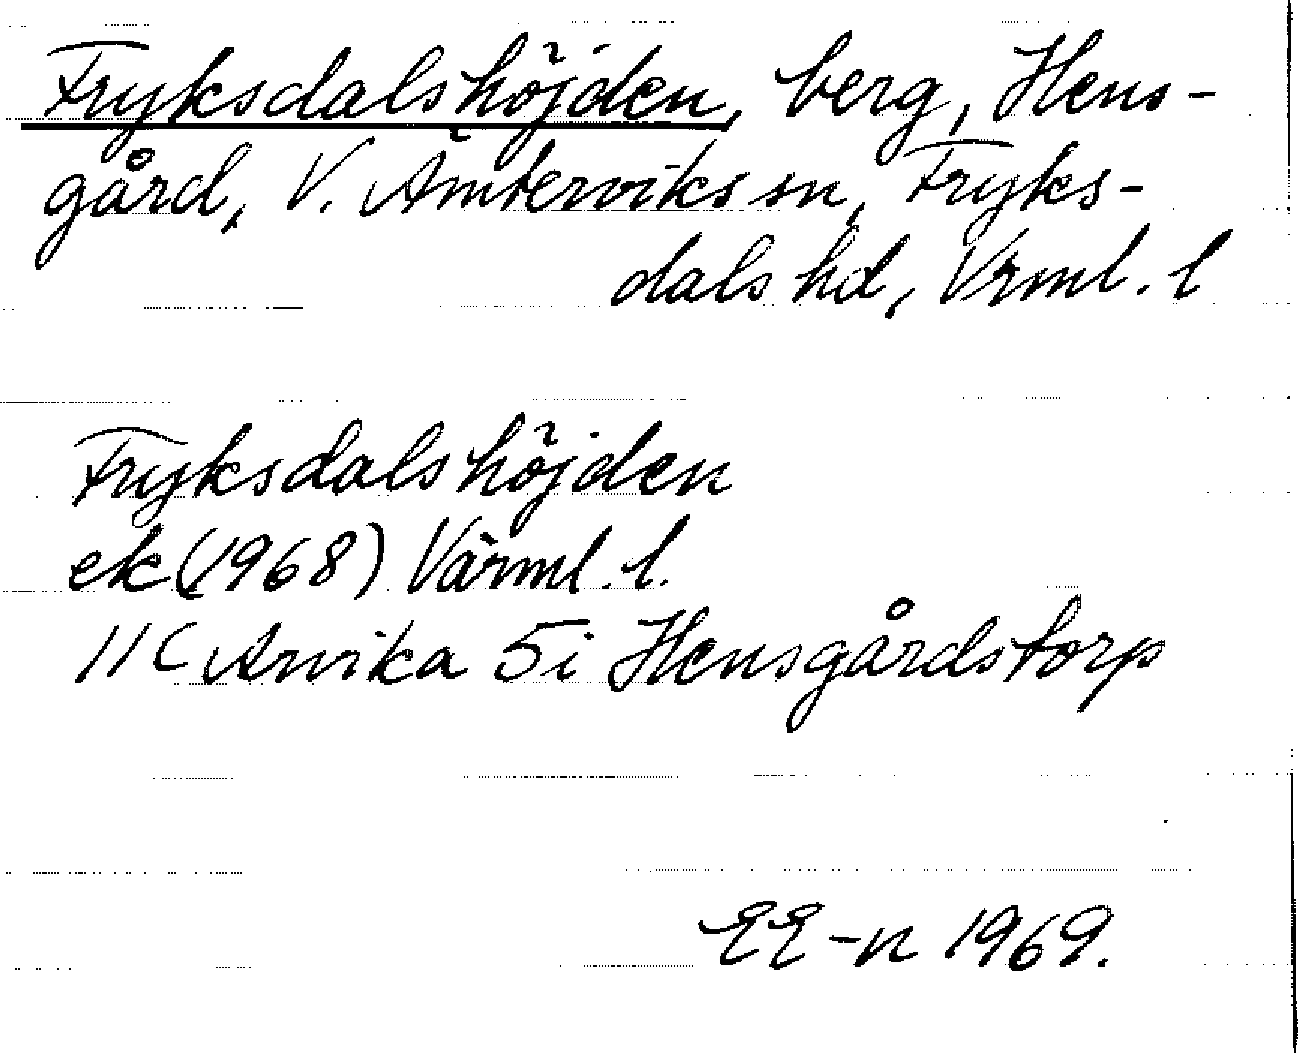 Fryksdalshöjden, berg, Hens-
gård, V. Ämterviks sn, Fryks-
dals hd, Vrml. l
Fryksdalshöjden
ek (1968) Värml. l.
11C Arvika 5i Hensgårdstorp
EE-n 1969.